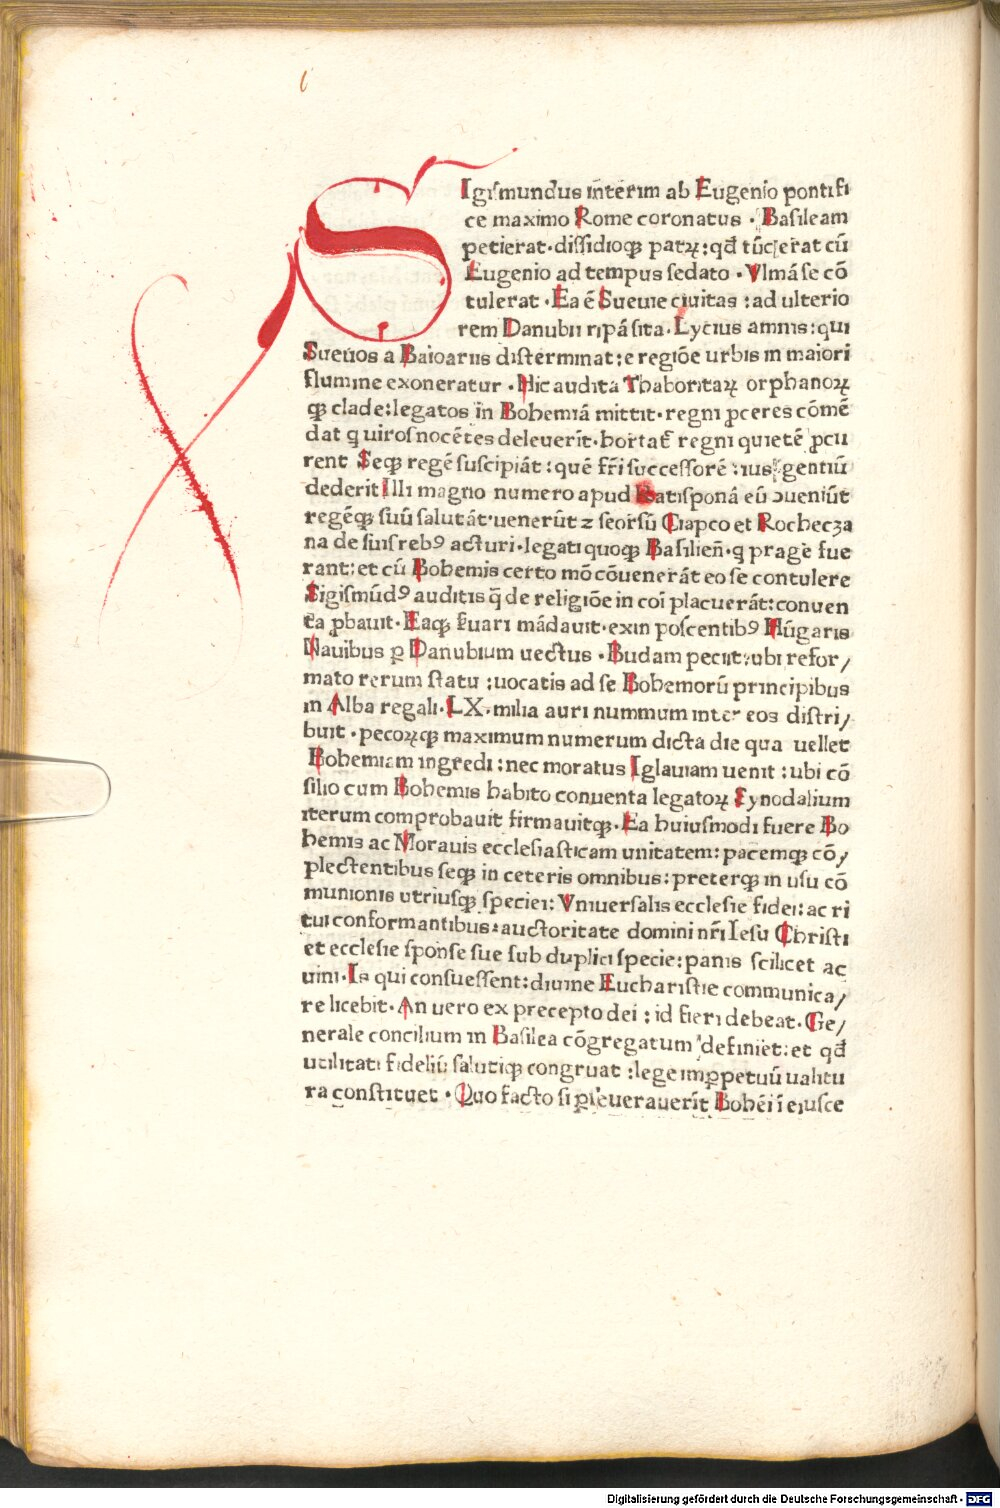 SIgiſmundus īnterim ab Eugenio pontifi
ce maximo Rome coronatus · Baſileam
petierat·diſſidioqꝫ patꝝ:qd̄ tūc erat cū
Eugenio ad tempus ſedato · Vlmā ſe cō
tulerat · Ea ē Sueuie ciuitas : ad ulterio
rem Danubii ripā ſita · Lycius amnis: qui
Sueuos a Baioariis diſterminat: e regiōe urbis in maiori
flumine exoneratur · Hic audita Thaboritaꝝ orphanoꝝ
qꝫ clade: legatos in Bohemiā mittit· regni ꝓceres cōmē
dat ꝙ uiros nocētes deleuerīt·hortat᷑ regni quietē ꝓcu
rent Seqꝫ regē ſuſcipiāt : quē fr̄i ſucceſſorē : ius gentiū
dederit Illi magno numero apud Ratiſponā eū ꝯueniūt
regēqꝫ ſuū ſalutāt·uenerūt ꝛ ſeorſū Ciapco et Rocheczа
na de ſuis rebꝰ acturi·legati quoqꝫ Baſilien̄·ꝙ prage fue
rant: et cū Bohemis certo mō cōuenerāt eo ſe contulere
Sigiſmūdꝰ auditis q̄ de religiōe in coī placuerāt: conuen
ta ꝓbauit · Eaqꝫ ẜuari mādauit · exin poſcentibꝰ Hūgaris
Nauibus ꝑ Danubium uectus · Budam peciit: ubi refor/
mato rerum ſtatu : uocatis ad ſe Bohemorū principibus
in Alba regali · LX · milia auri nummum inter eos diſtri/
buit · pecoꝝqꝫ maximum numerum dicta die qua uellet
Bohemiam ingredi : nec moratus Iglauiam uenit : ubi cō
ſilio cum Bohemis habito conuenta legatoꝝ Synodalium
iterum comprobauit firmauitqꝫ · Ea huiuſmodi fuere Bo
hemis ac Morauis eccleſiaſticam unitatem: pacemqꝫ cō/
plectentibus ſeqꝫ in ceteris omnibus: preterqꝫ in uſu cō
munionis utriuſqꝫ ſpeciei: Vniuerſalis eccleſie fidei: ac ri
tui conformantibus: auctoritate domini nr̄i Ieſu Chriſti
et eccleſie ſponſe ſue ſub duplici ſpecie: panis ſcilicet ac
uini· Is qui conſueſſent: diuine Euchariſtie communica/
re licebit · An uero ex precepto dei : id fieri debeat · Ge/
nerale concilium in Baſilea cōgregatum definiet: et qd̄
utilitati fideliū ſalutiqꝫ congruat : lege imꝑpetuū ualitu
ra conſtituet · Quo facto ſi ꝑſeuerauerīt Bohēi ī eiuſce
Digitalisierung gefördert durch die Deutsche Forschungsgemeinschaft - DFG